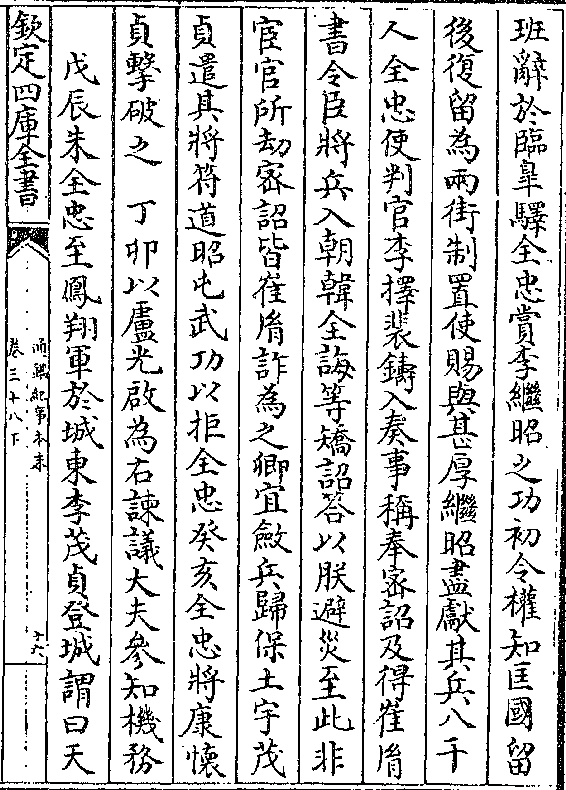 班辭於臨皐驛全忠賞李繼昭之功初令權知匡國留
後復留為兩街制置使賜與甚厚繼昭盡獻其兵八千
人全忠使判官李擇裴鑄入奏事稱奉密詔及得崔胤
書令臣將兵入朝韓全誨等矯詔答以朕避災至此非
宦官所劫密詔皆崔胤詐為之卿宜斂兵歸保土宇茂
貞遣其將符道昭屯武功以拒全忠癸亥全忠將康懷
貞擊破之 丁卯以盧光啟為右諫議大夫參知機務
戊辰朱全忠至鳳翔軍於城東李茂貞登城謂曰天
欽定四庫全書
通鑑紀事本末
卷三十八下
十六